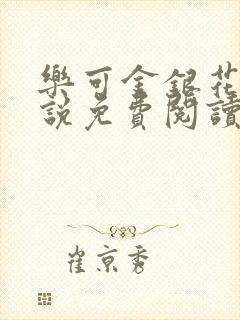 樂可金銀花
說免費閱讀
崔京秀